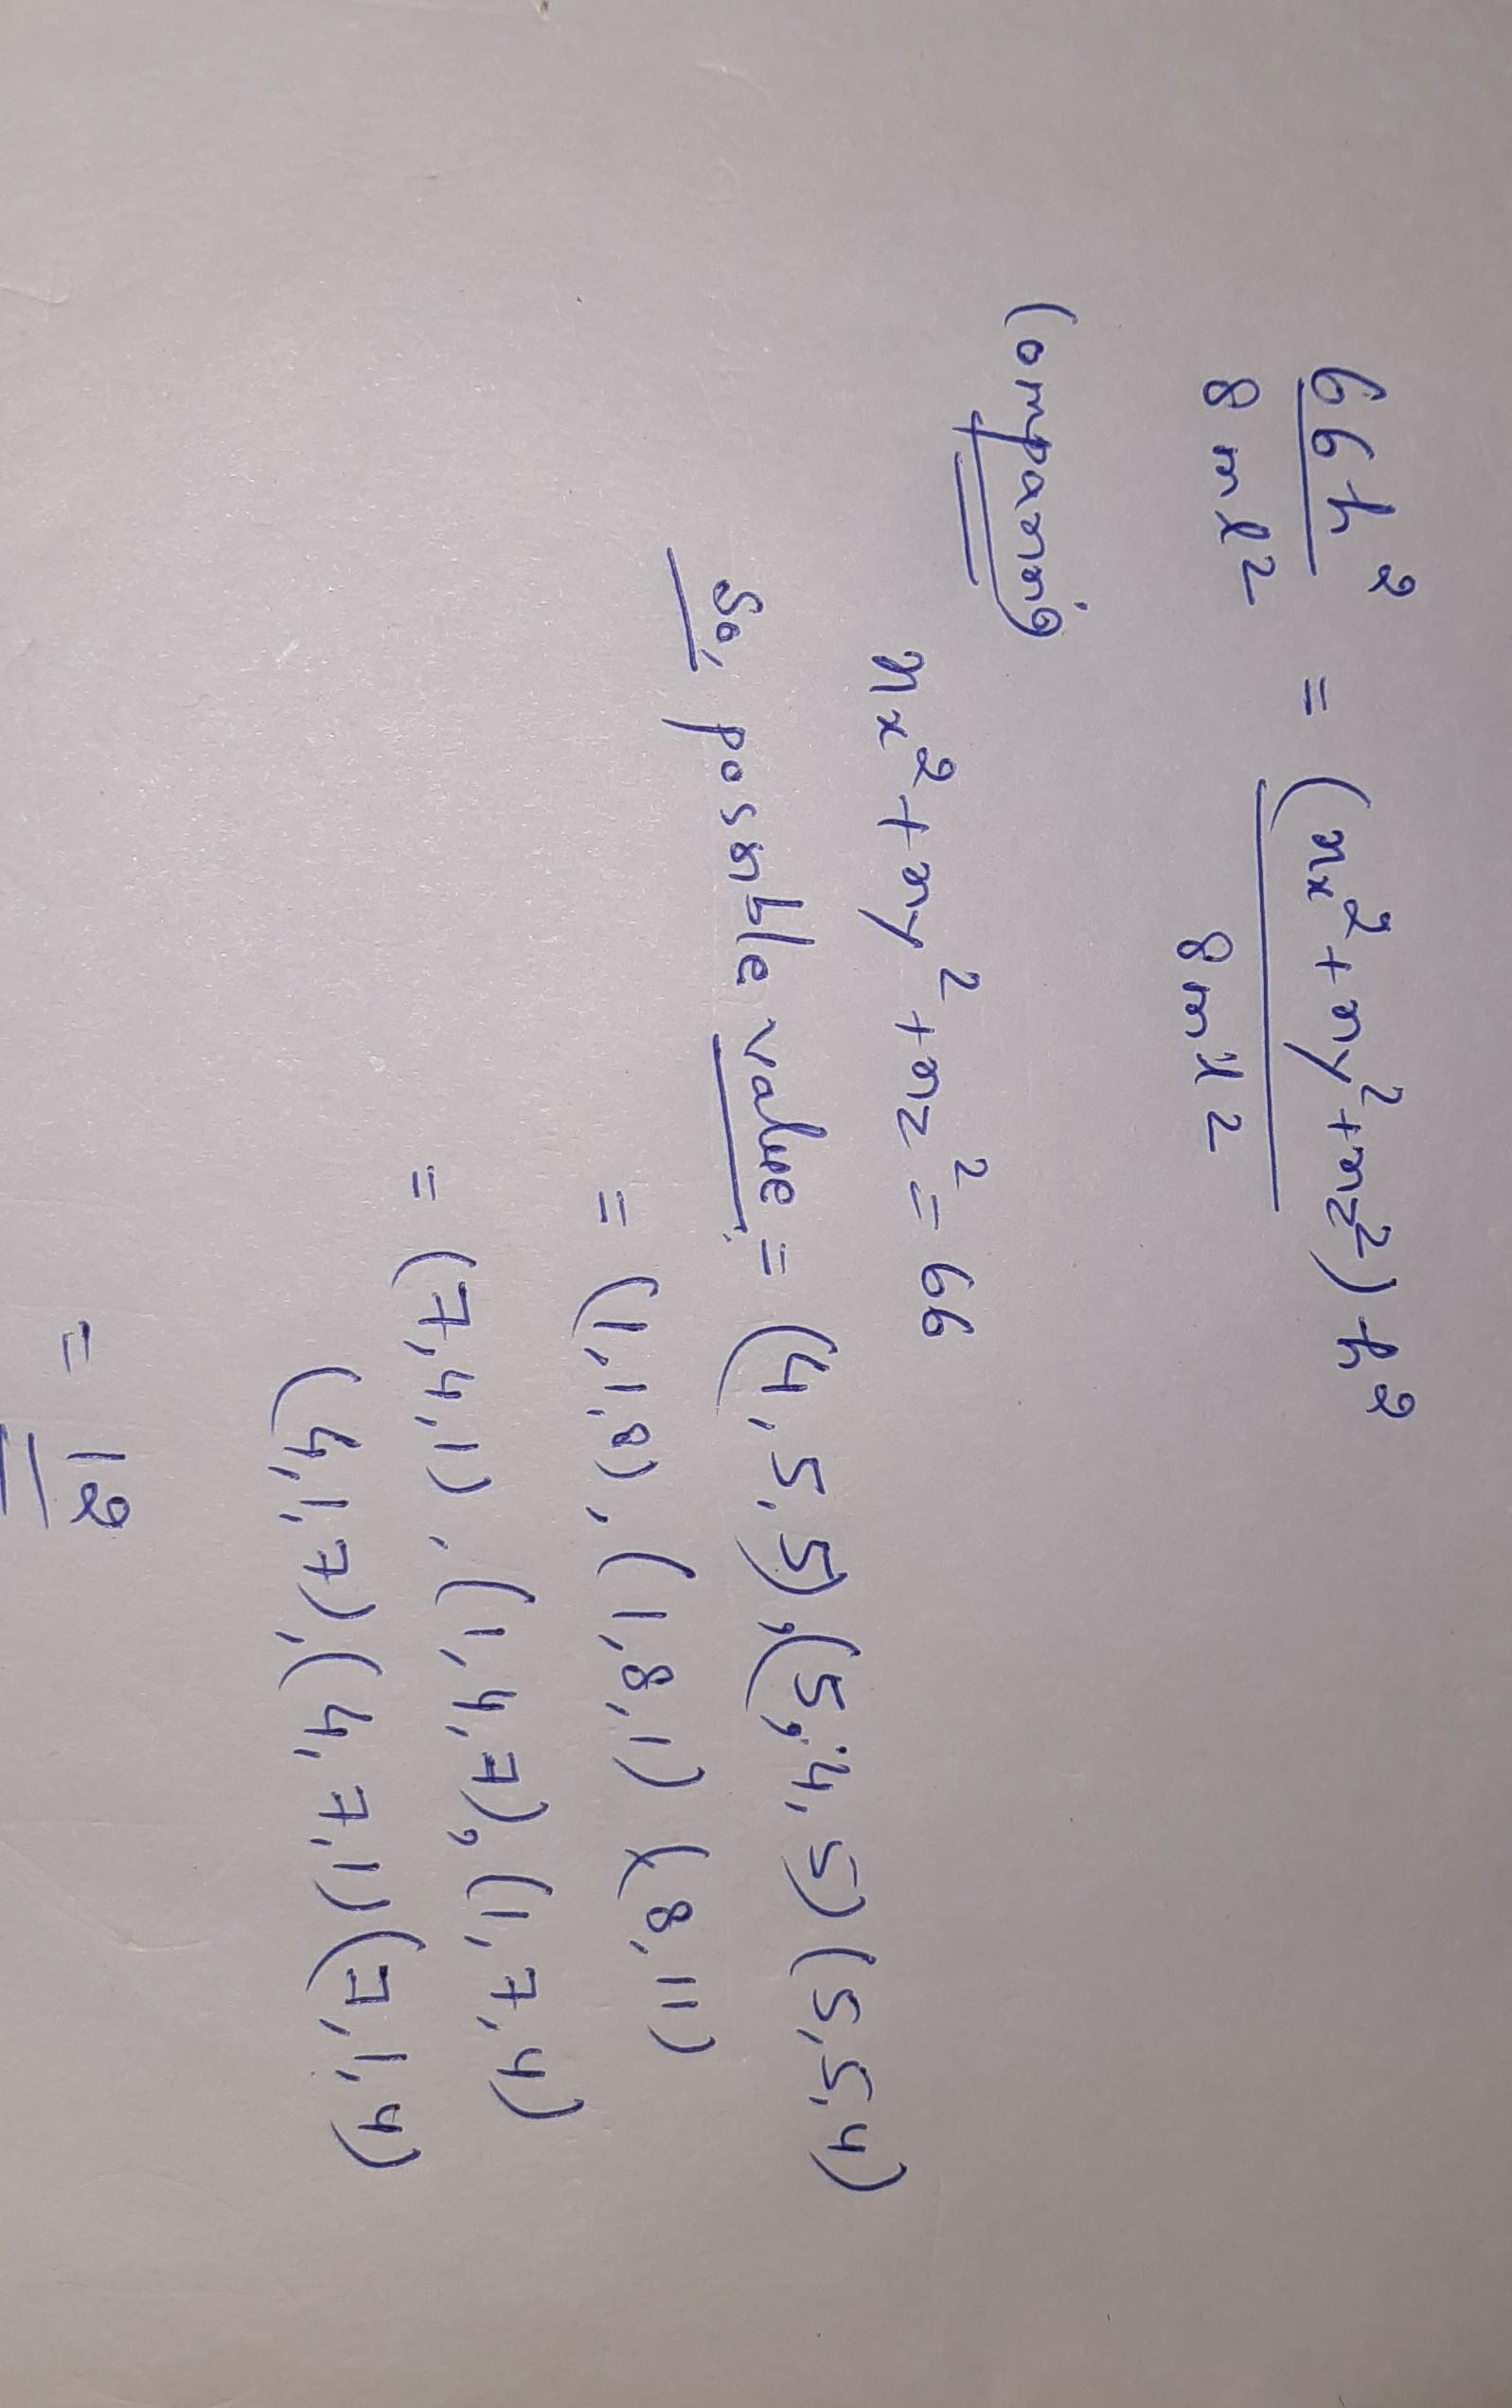 66h² = (nx²+ny²+nz²)h²
8ml² 8ml²
Comparing
nx²+ny²+nz²=66
So, possible value = (4,5,5),(5,4,5)(5,5,4)
= (1,1,8),(1,8,1)(8,11)
= (7,4,1),(1,4,7),(1,7,4)
(4,1,7),(4,7,1)(7,1,4)
= 12